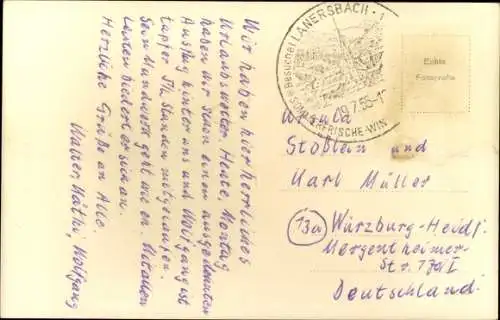 Wir haben hier herrliches
Urlaubswetter. Heute, Montag
haben wir schon einen ausgedehnten
Ausflug hinter uns und Wolfgang ist
tapfer 7½ Stunden mitgelaufen.
Sein Mundwerk geht wie en. Mit allen
Leuten biedert er sich an.
Herzliche Grüße an Alle.
Walter, Käthi, Wolfgang
Besuchet LANERSBACH
SOMMERFRISCHE-WIN
19.7.55-1
Echte
Fotografie
Ursula
Stoßlein und
Karl Müller
(13a) Würzburg-Heidf.
Mergentheimer-
Str.
Deutschland.